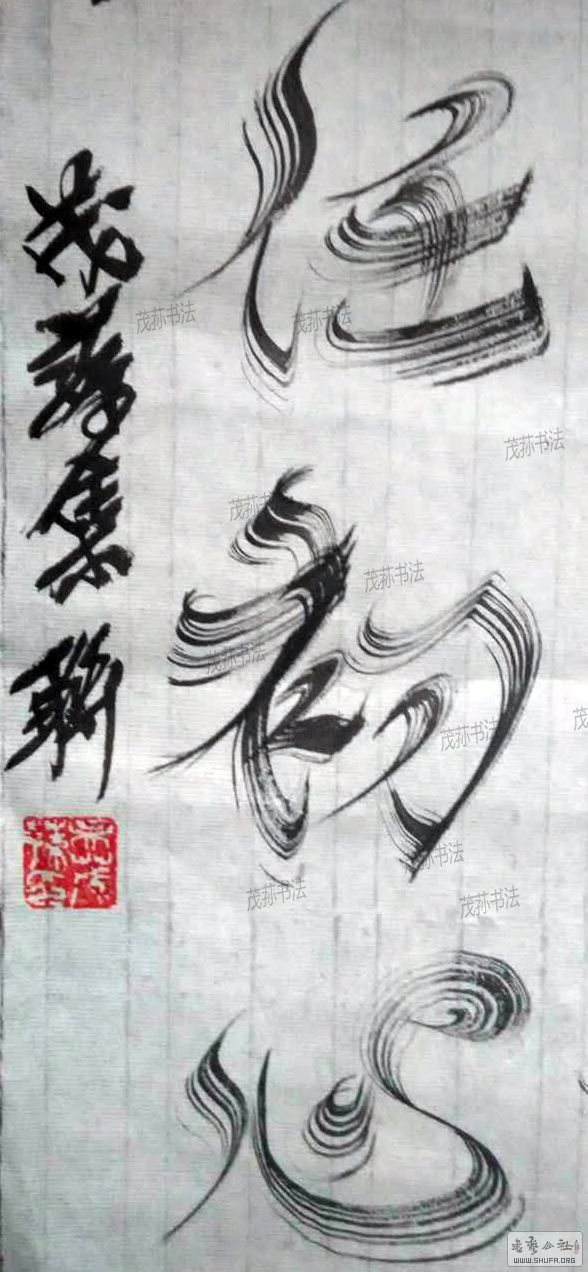 任
初
心
茂蓀集聯
茂荪书法
茂荪书法
茂荪书法
茂荪书法
茂荪书法
茂荪书法
茂荪书法
茂荪书法
茂荪书法
書藝公社
WWW.SHUFA.ORG